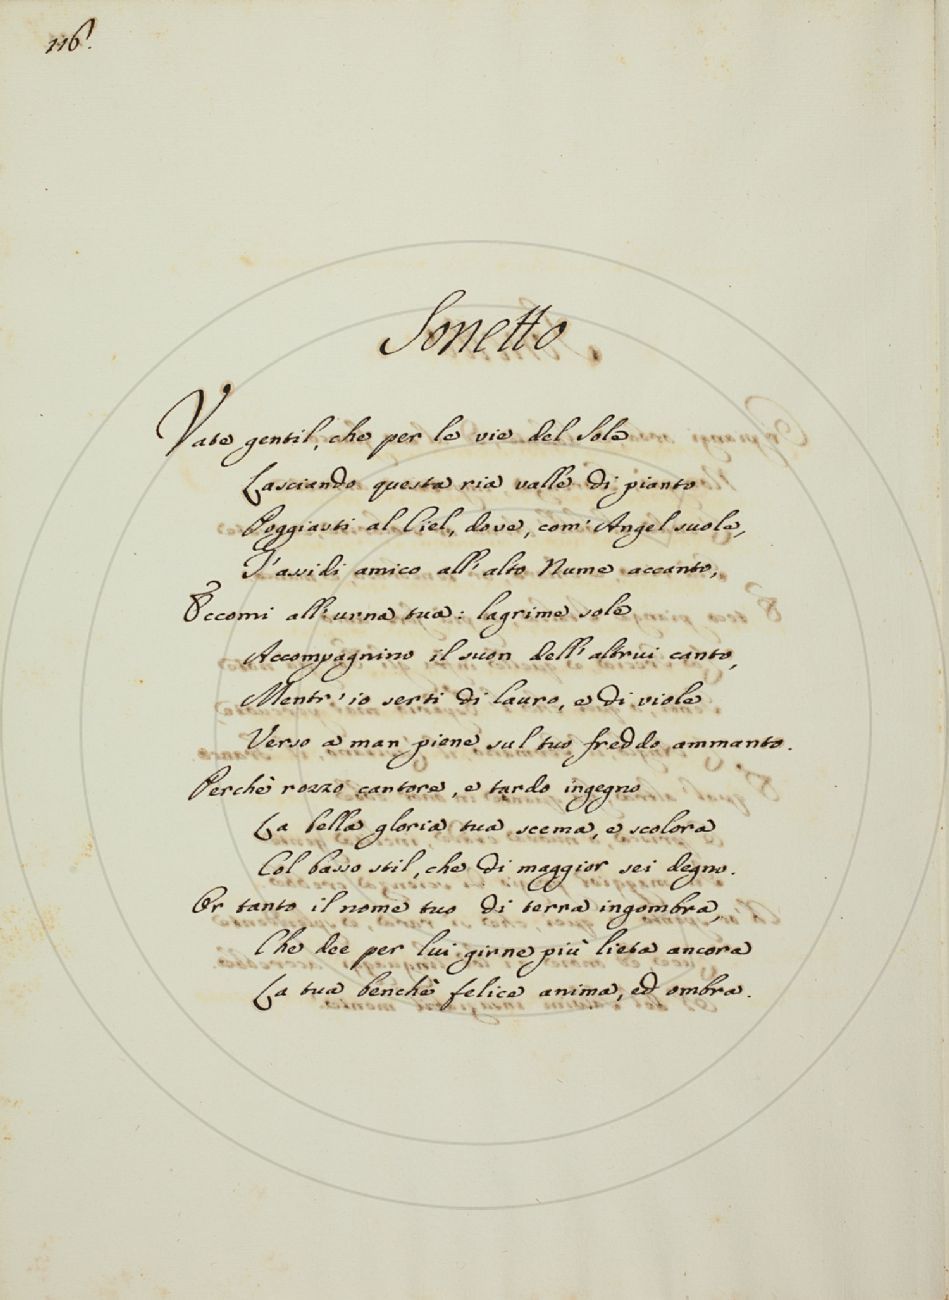 116.
Sonetto
Vate gentil, che per le vie del Sole
Lasciando questa ria valle di pianto
Poggiasti al Ciel, dove, com' Angel suole,
T'assidi amico all'alto Nume accanto,
Eccomi all'urna tua: lagrime sole
Accompagnino il suon dell'altrui canto,
Mentr'io serti di lauro, e di viole
Verso a man piene sul tuo freddo ammanto.
Perchè rozzo cantore, e tardo ingegno
La bella gloria tua scema, e scolora
Col basso stil, che di maggior sei degno.
Or tanto il nome tuo di terra ingombra,
Che dee per lui girne più lieta ancora
La tua benchè felice anima, ed ombra.